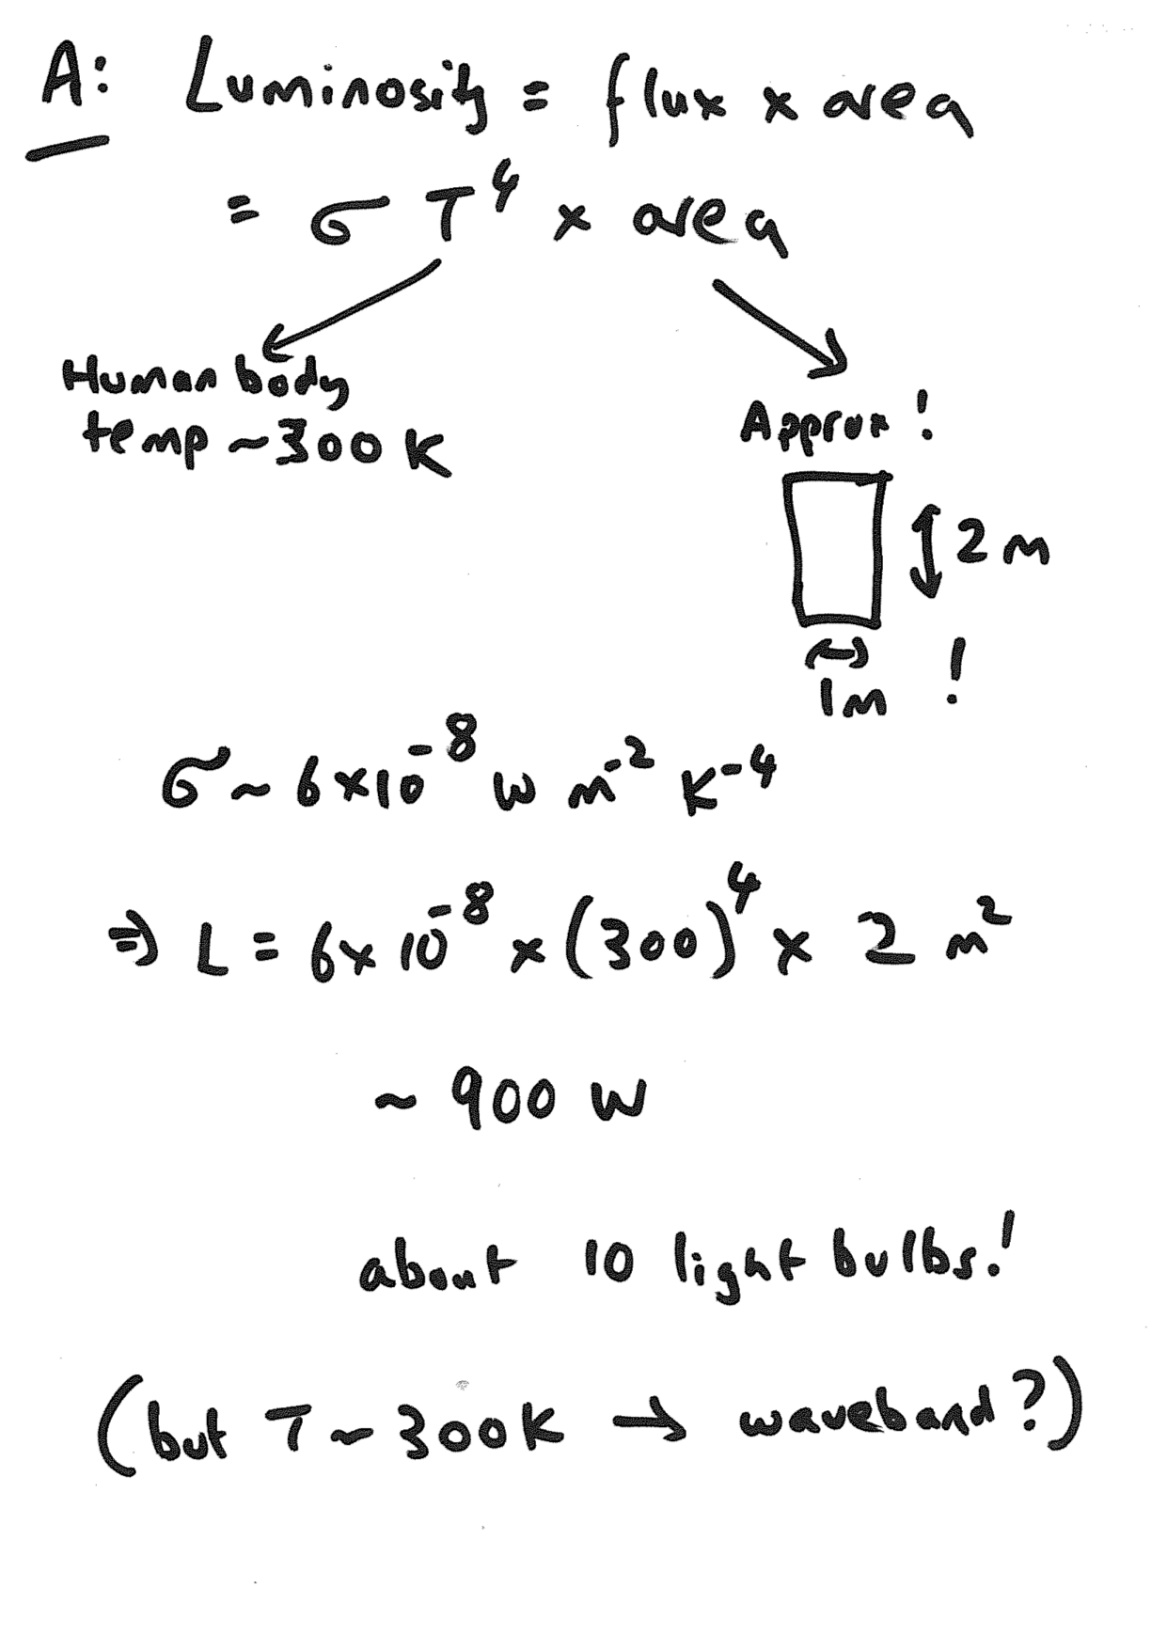 A: Luminosity = flux x area
= σ T⁴ x area
Human body
temp ~300 K
Approx !
2 m
1m !
σ ~ 6x10⁻⁸ W m⁻² K⁻⁴
⇒ L = 6x 10⁻⁸ x (300)⁴ x 2 m²
~ 900 W
about 10 light bulbs!
(but T ~ 300K → waveband?)